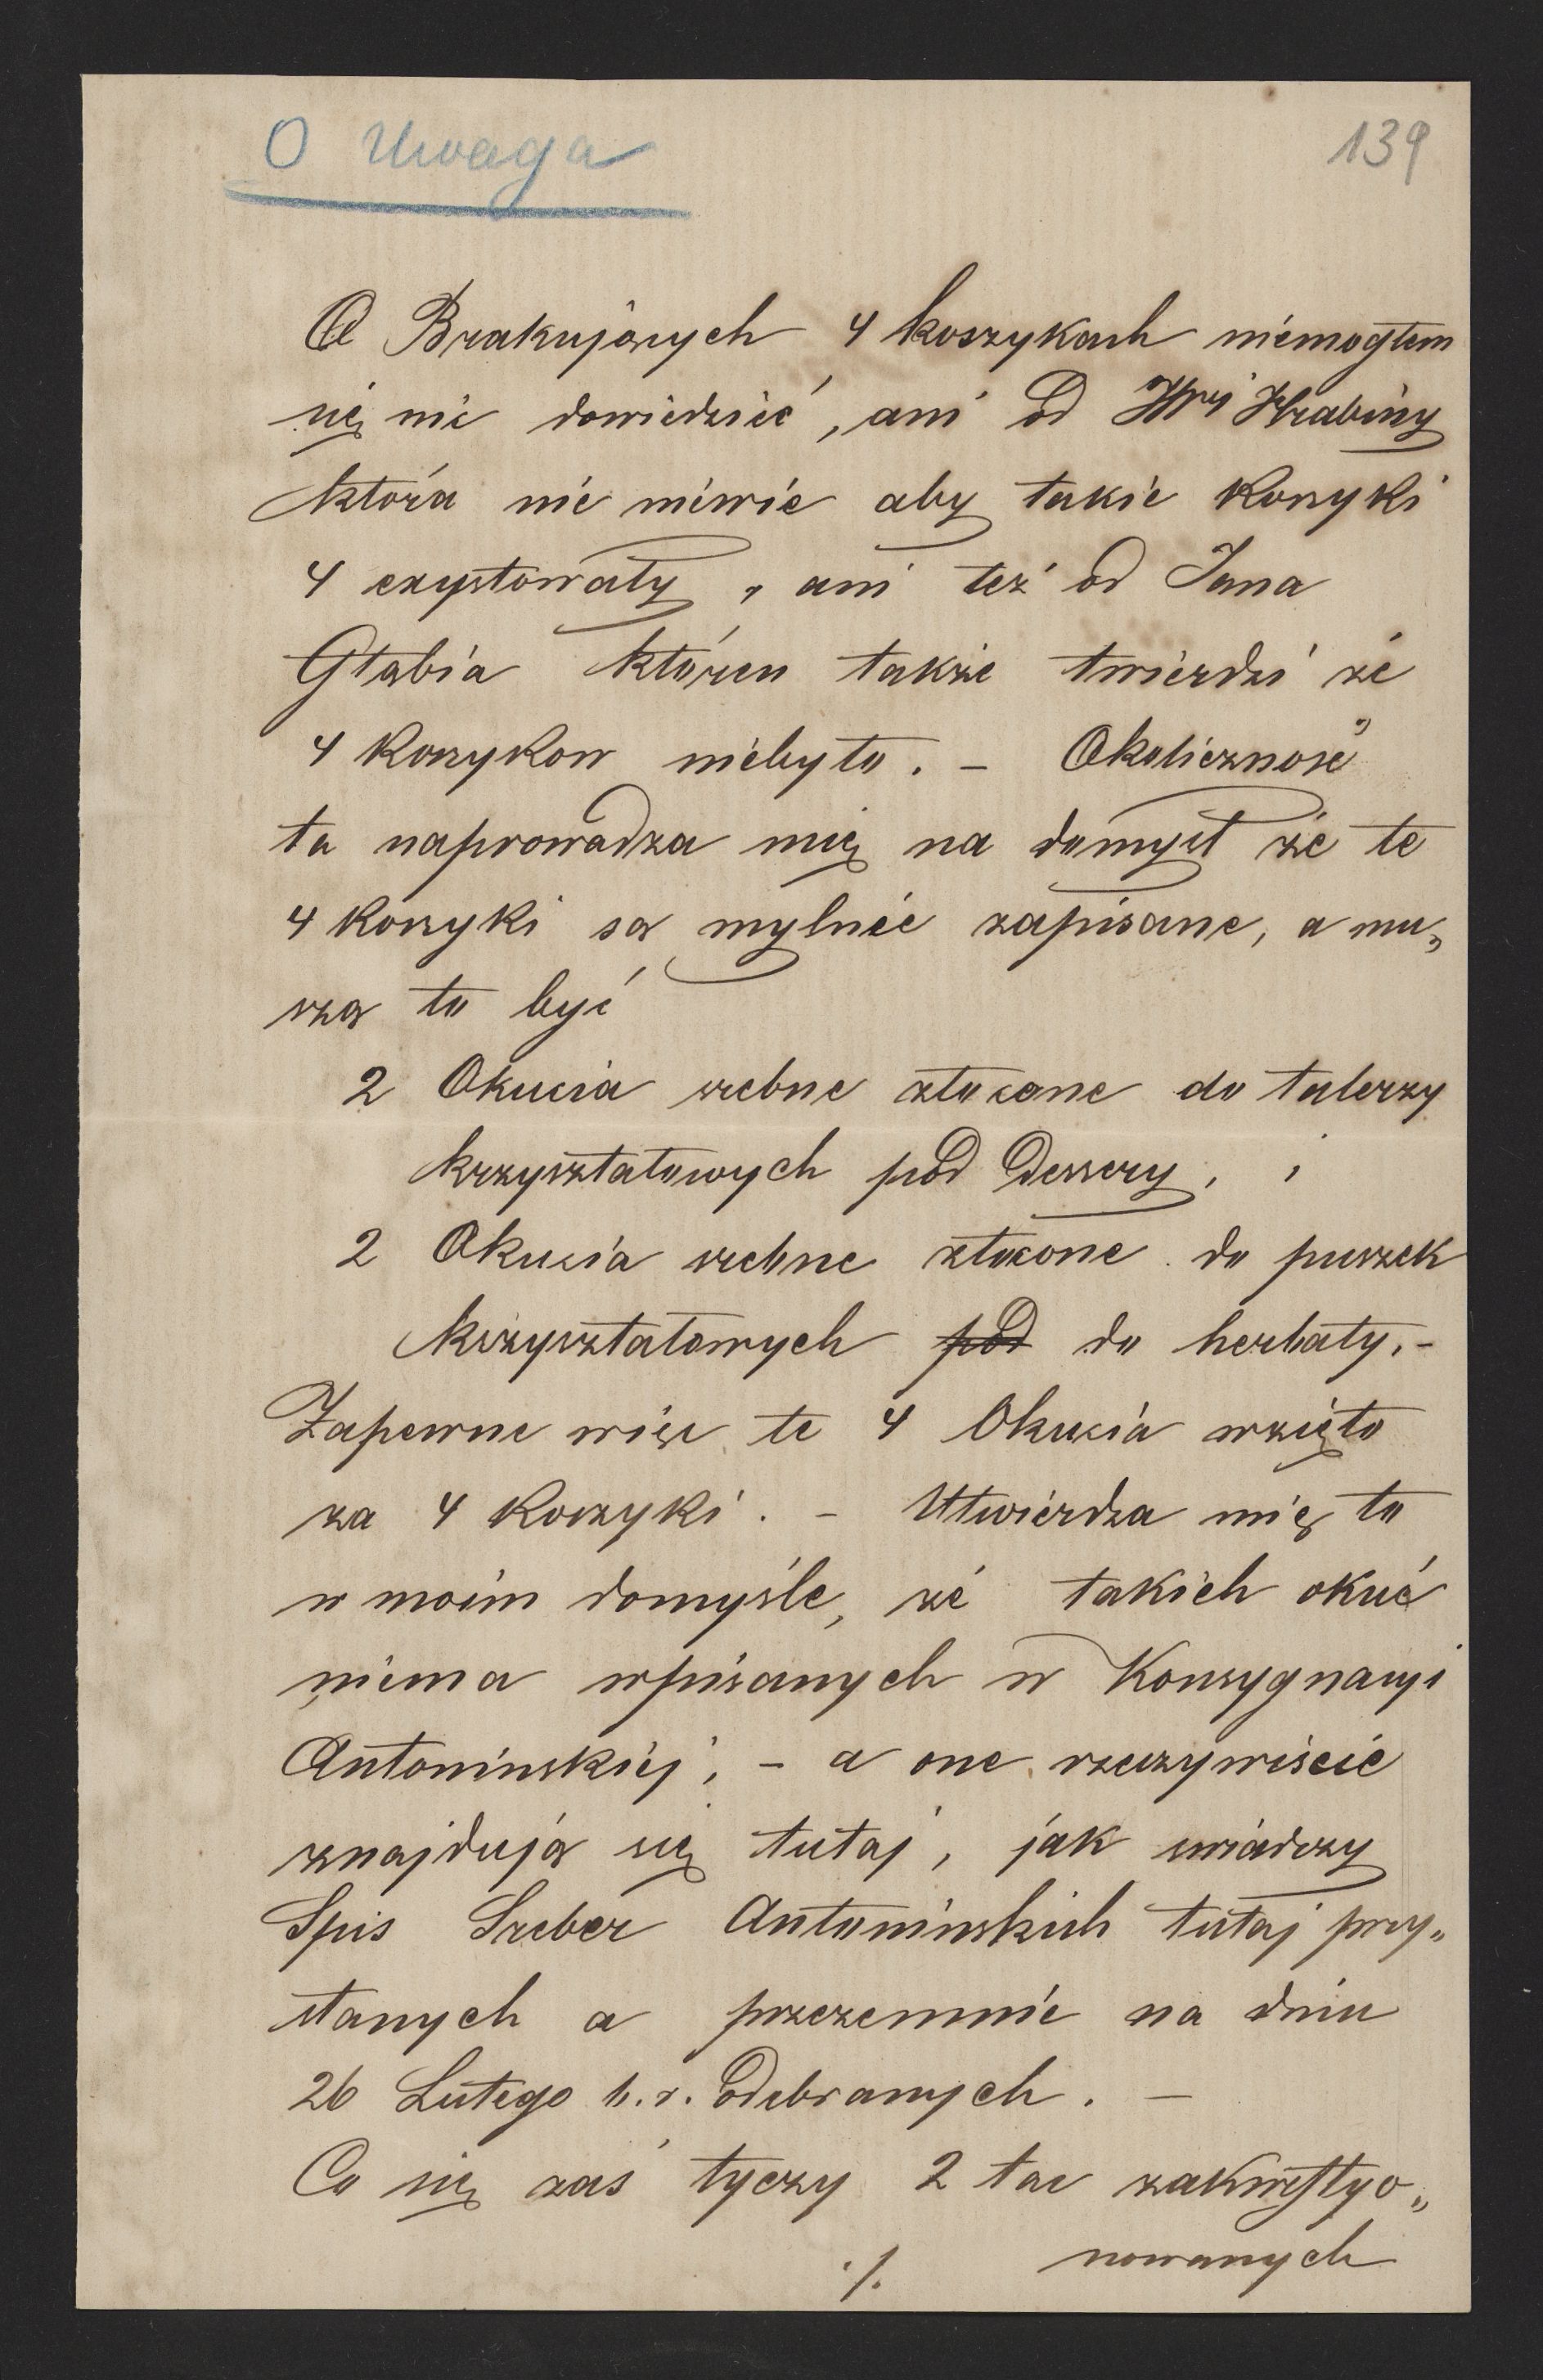 O Uwaga
139
O Brakujących 4 koszykach niemogłem
się nic dowiedzieć, ani od JWnej Hrabiny
która nic niewie aby takie koszyki
4 exystowały, ani też od Jana
Głąbia któren także twierdzi że
4 koszykow niebyło. – Okoliczność
ta naprowadza mię na domysł że te
4 koszyki są mylnie zapisane, a mu„
szą to być
2 Okucia srebne złocone do talerzy
krzyształowych pod Dessery, i
2 Okucia srebne złocone do puszek
krzyształowych pod do herbaty. –
Zapewne więc te 4 Okucia wzięto
za 4 Koszyki. – Utwierdza mię to
w moim domyśle, że takich okuć
niema wpisanych w Konsygnacyi
Antoninskiej, – a one rzeczywiście
znajdują się tutaj, jak swiadczy
Spis Sreber Antoninskich tutaj przy„
słanych a przezemnie na dniu
26 Lutego b.r. Odebranych. –
Co się zaś tyczy 2 tac zakwestyo„
nowanych
./.